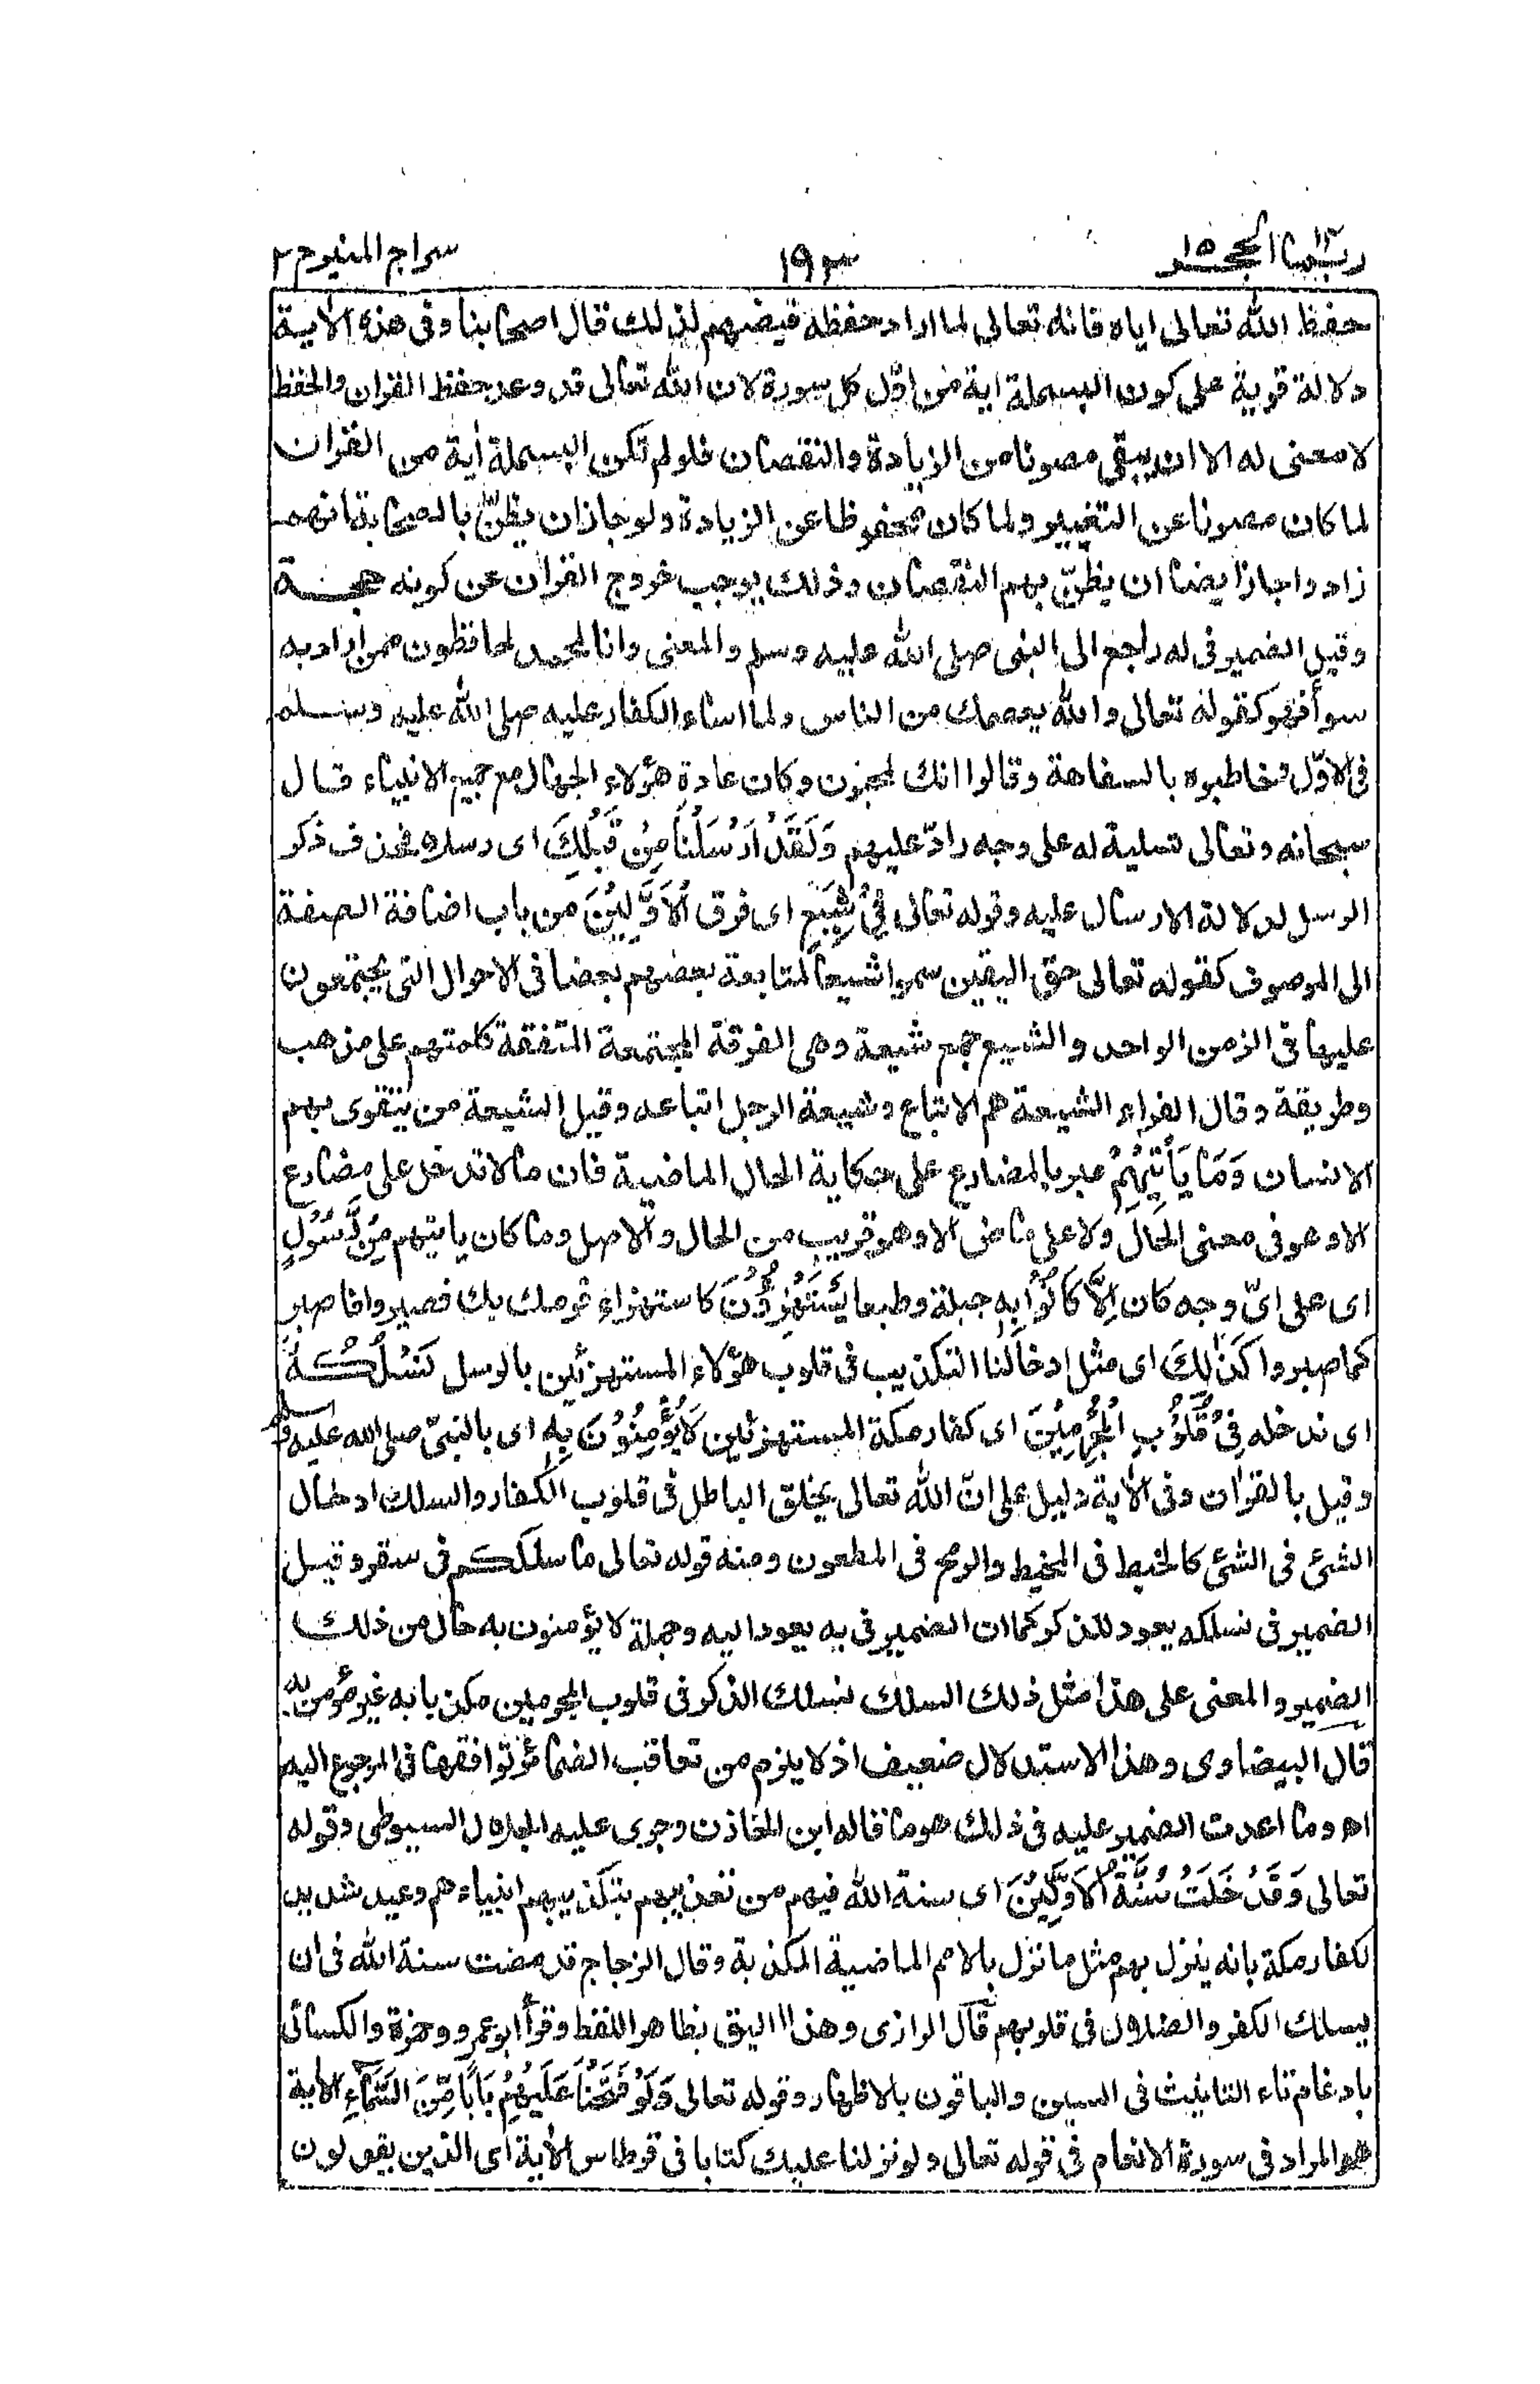 ربما ١٤ الحجر ١٥ ١٩٣ سراج المنير ج ٢
حفظ الله تعالى اياه فانه تعالى لما اراد حفظه قيضهم لذلك قال اصحابنا وفى هذه الاية
دلالة قوية على كون البسملة اية من اوّل كل سورة لان الله تعالى قد وعد بحفظ القران والحفظ
لا معنى له الا ان يبقى مصونا من الزيادة والنقصان فلو لم تكن البسملة أية من القران
لما كان مصونا عن التغيير ولما كان محفوظا عن الزيادة ولو جاز ان يظنّ بالصحابة انهم
زادوا جاز ايضا ان يظنّ بهم النقصان وذلك يوجب خروج القران عن كونه حجة
وقيل الضمير فى له راجع الى النبى صلى الله عليه وسلم والمعنى وانا لمحمد لحافظون ممن أراد به
سوأ فهو كقوله تعالى والله يعصمك من الناس ولما اساء الكفار عليه صلى الله عليه وسلم
فى الاوّل وخاطبوه بالسفاهة وقالوا انك لمجنون وكان عادة هؤلاء الجهال مع جميع الانبياء قال
سبحانه وتعالى تسلية له على وجه رادّ عليهم وَلَقَدْ اَرْسَلْنَا مِنْ قَبْلِكَ اى رسلا فحذف ذكر
الرسل لدلالة الارسال عليه وقوله تعالى فِيْ شِيَعِ اى فرق اْلاَوَّلِيْنَ من باب اضافة الصفة
الى الموصوف كقوله تعالى حق اليقين سموا شيعا لمتابعة بعضهم بعضا فى الاحوال التى يجتمعون
عليها فى الزمن الواحد والشيع جمع شيعة وهى الفرقة المجتمعة المتفقة كلمتهم على مذهب
وطريقة وقال الفراء الشيعة هم الاتباع وشيعة الرجل اتباعه وقيل الشيعة من يتقوى بهم
الانسان وَمَا يَأْتِيْهِمْ عبر بالمضارع على حكاية الحال الماضية فان ما لا تدخل على مضارع
الا وهو فى معنى الحال ولا على ماض الا وهو قريب من الحال والاصل وما كان ياتيهم مِنْ رَّسُوْلٍ
اى على اىّ وجه كان اِلاَّ كَانُوْا بِهٖ جبلة وطبعا يَسْتَهْزِؤُنَ كاستهزاء قومك بك فصبروا فاصبر
كما صبروا كَذٰلِكَ اى مثل ادخالنا التكذيب فى قلوب هؤلاء المستهزئين بالرسل نَسْلُكُهٗ
اى ندخله فِيْ قُلُوْبِ الْمُجْرِمِيْنَ اى كفار مكة المستهزئين لاَيُؤْمِنُوْنَ بِهٖ اى بالنبىّ صلى الله عليه وسلم
وقيل بالقران وفى الاية دليل على انّ الله تعالى يخلق الباطل فى قلوب الكفار والسلك ادخال
الشئ فى الشئ كالخيط فى المخيط والرمح فى المطعون ومنه قوله تعالى ما سلككم فى سقر وقيل
الضمير فى نسلكه يعود للذكر كما ان الضمير فى به يعود اليه وجملة لا يؤمنون به حال من ذلك
الضمير والمعنى على هذا مثل ذلك السلك نسلك الذكر فى قلوب المجرمين مكذبا به غير مؤمن به
قال البيضاوى وهذا الاستدلال ضعيف اذ لا يلزم من تعاقب الضمائر توافقها فى المرجوع اليه
اه وما اعدت الضمير عليه فى ذلك هو ما قاله ابن الخازن وجرى عليه الجلال السيوطى وقوله
تعالى وَقَدْ خَلَتْ سُنَّةُ اْلاَوَّلِيْنَ اى سنة الله فيهم من تعذيبهم بتكذيبهم انبياءهم وعيد شديد
لكفار مكة بانه ينزل بهم مثل ما نزل بالامم الماضية المكذبة وقال الزجاج قد مضت سنة الله فى ان
يسلك الكفر والضلال فى قلوبهم قال الرازى وهذا اليق بظاهر اللفظ وقرأ ابو عمرو وحمزة والكسائى
بادغام تاء التانيث فى السين والباقون بالاظهار وقوله تعالى وَلَوْ فَتَحْنَا عَلَيْهِمْ بَابًا مِّنَ السَّمَآءِ الاية
هو المراد فى سورة الانعام فى قوله تعالى ولو نزلنا عليك كتابا فى قرطاس الاية اى الذين يقولون